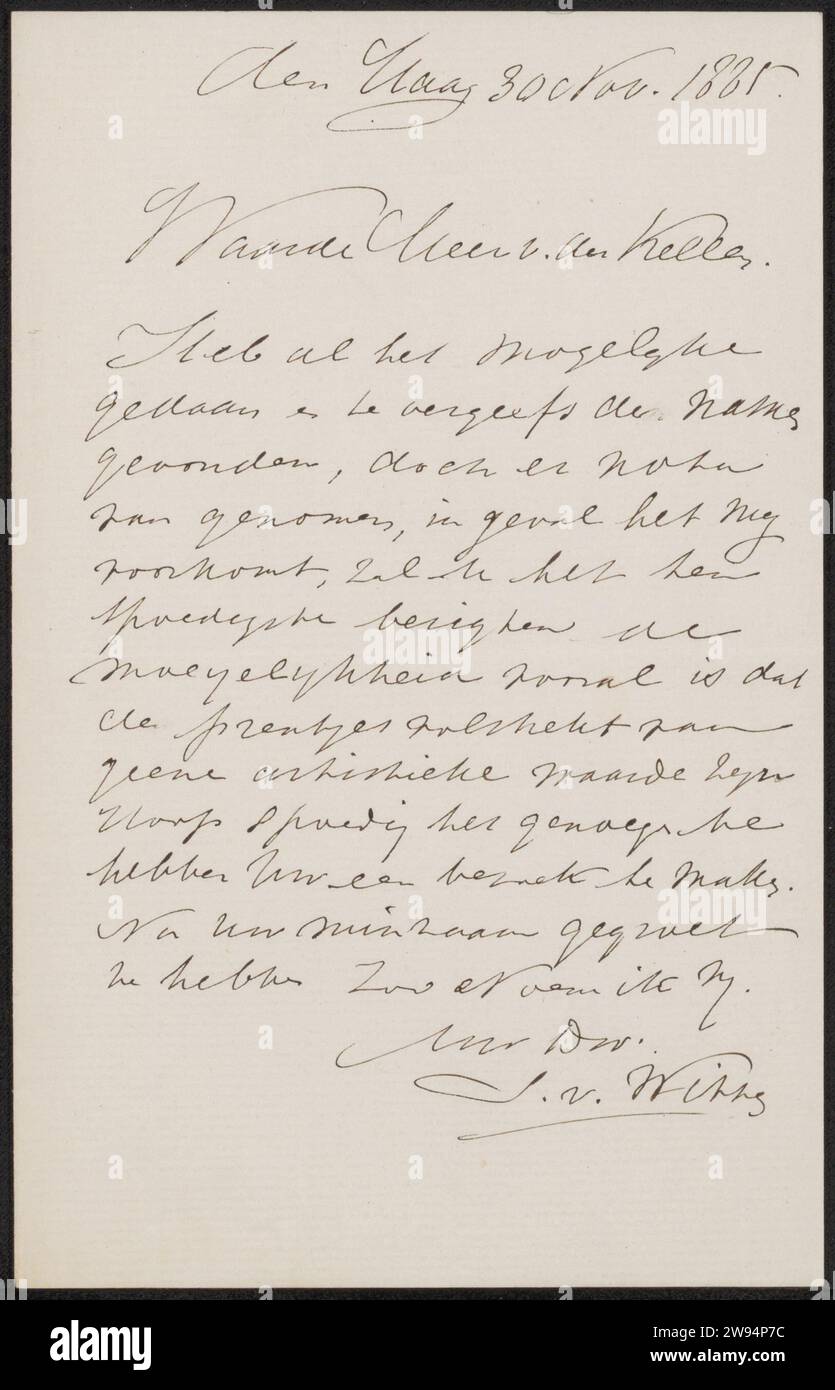 den Haag 30 Nov. 1885.
Waarde Heer v. der Kellen.
Ik heb al het mogelyke
gedaan en te vergeefs de namen
gevonden, doch er nota
van genomen, in geval het my
voorkomt, zal ik het ten
spoedigste berigten de
moeyelykheid vooral is dat
de prentjes volstrekt van
geene artistieke waarde zyn
Hoop spoedig het genoegen te
hebben Uw een bezoek te maken.
Na Uw minzaam gegroet
te hebben Zoo Noem ik my.
Uw Dw.
J. v. Witt
alamy
Image ID: 2W94P7C
www.alamy.com